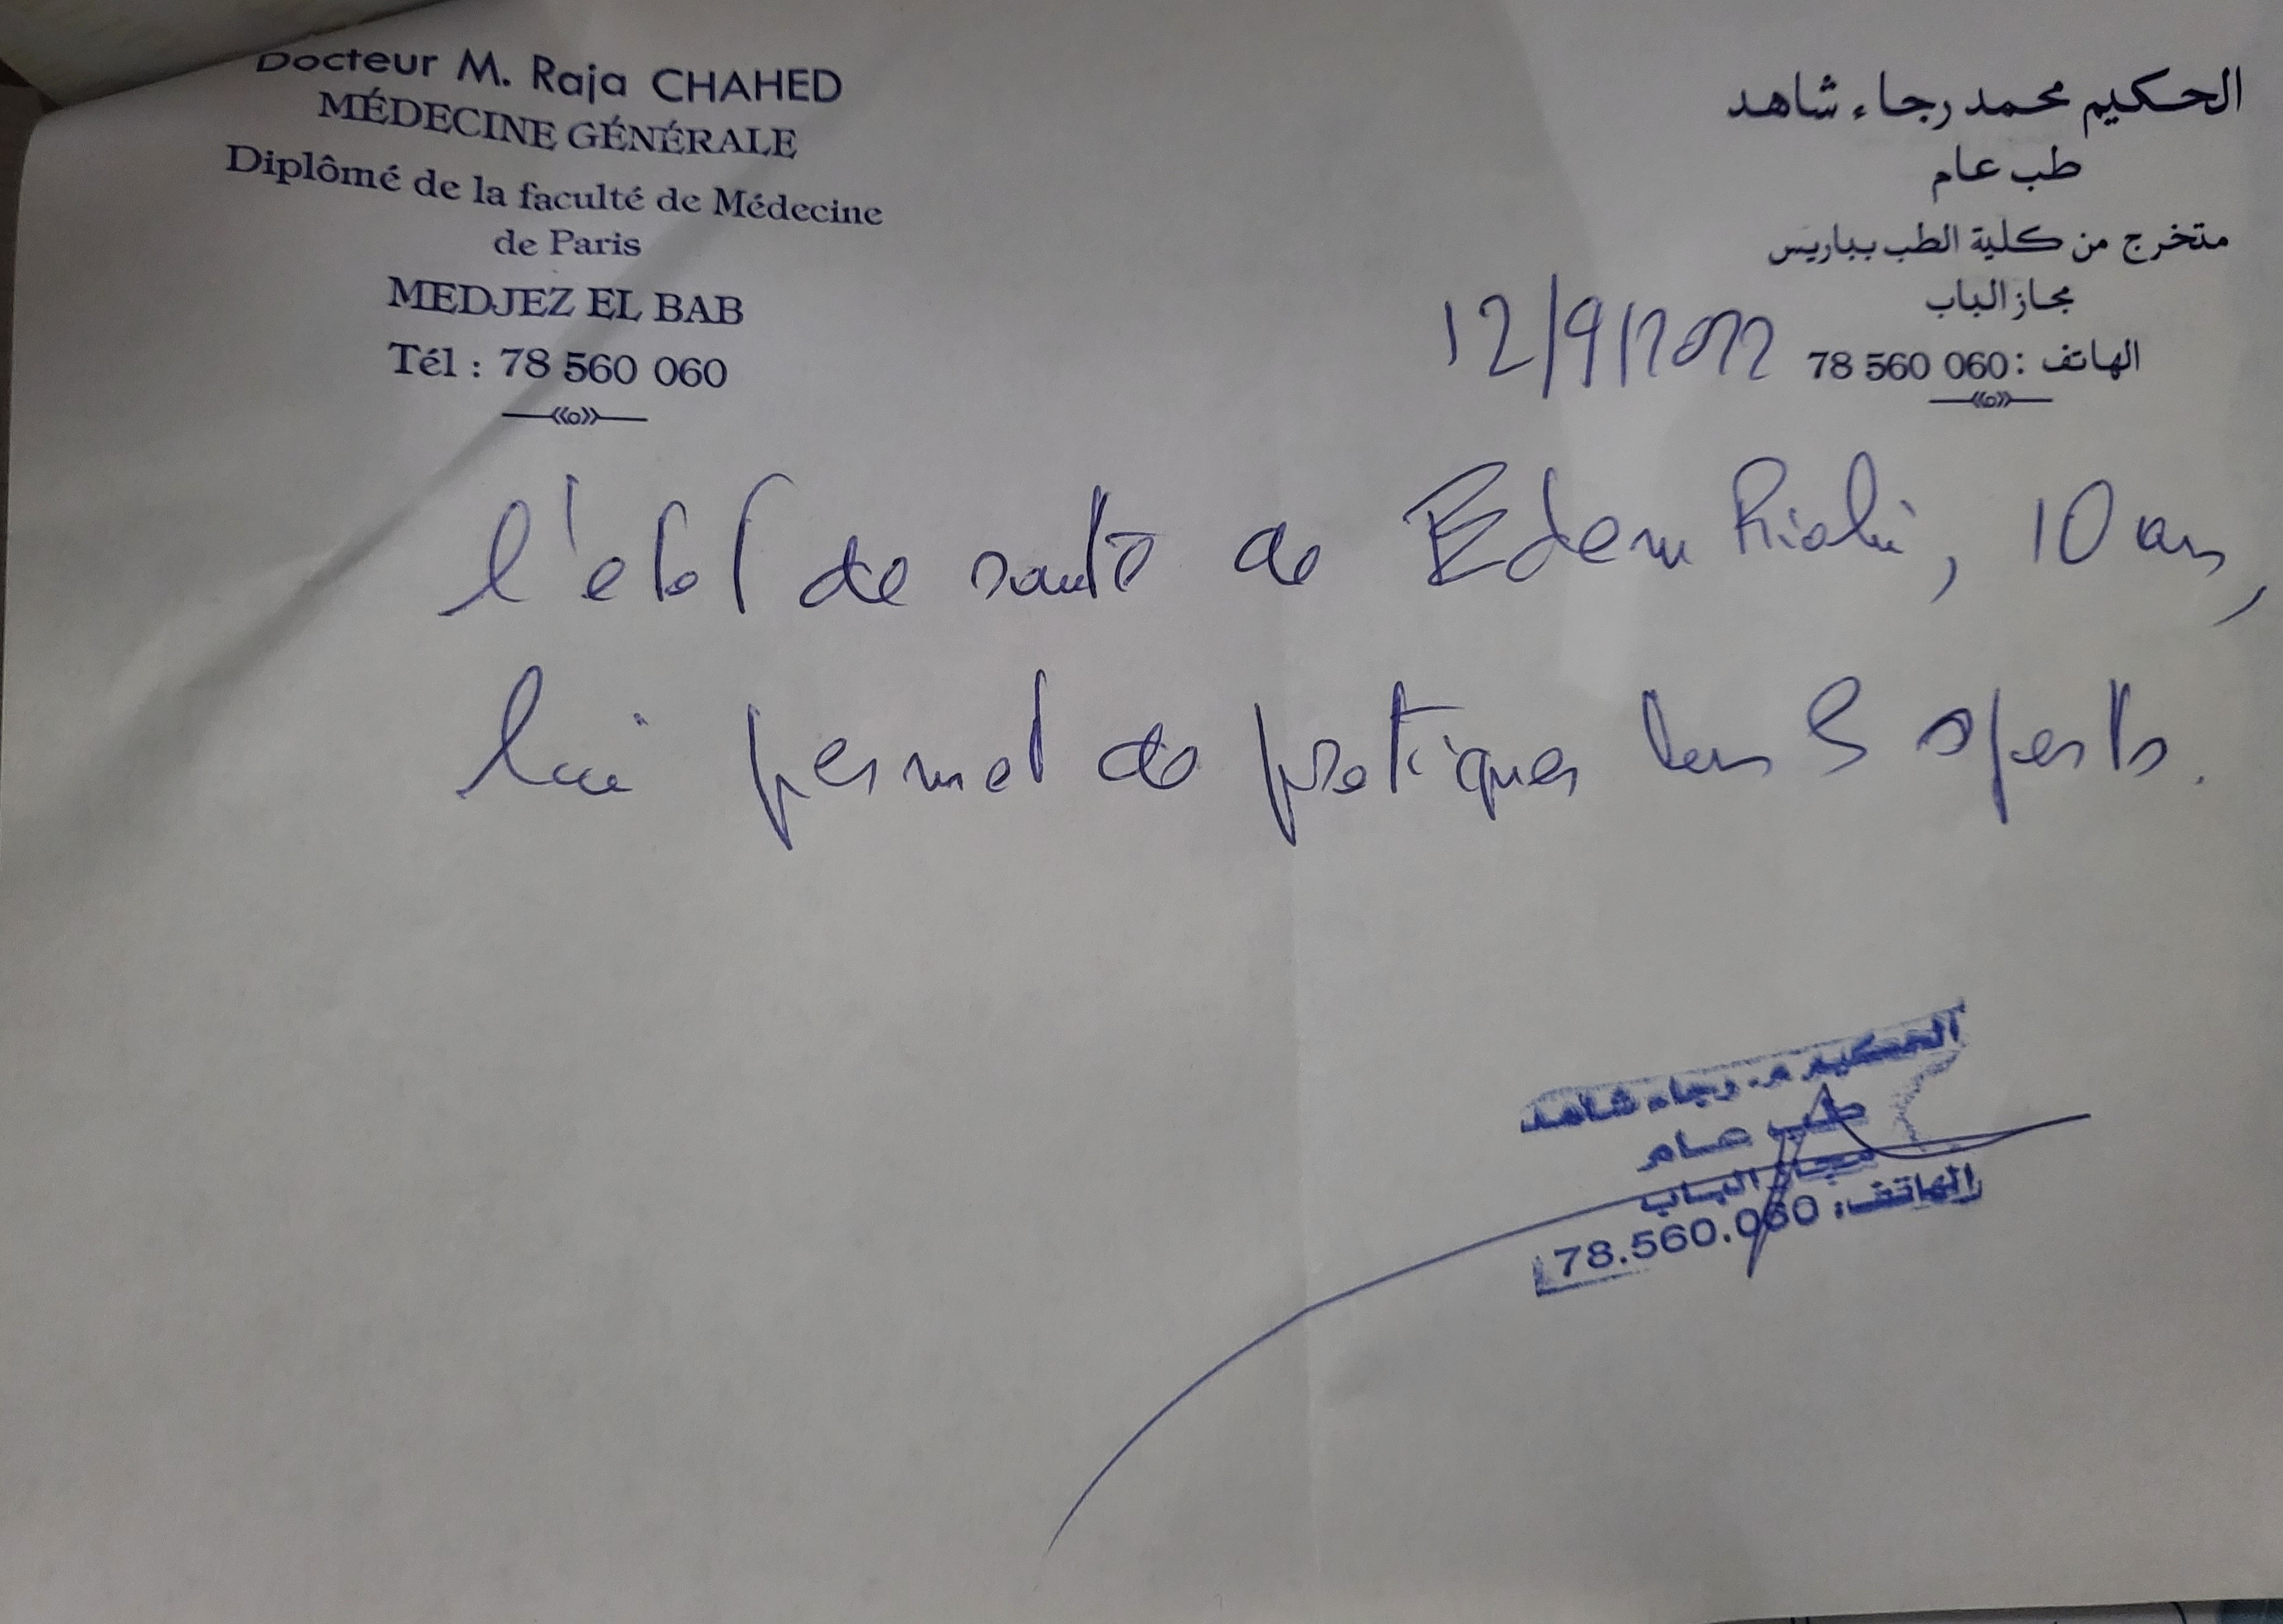 Docteur M. Raja CHAHED
MÉDECINE GÉNÉRALE
Diplômé de la faculté de Médecine
de Paris
MEDJEZ EL BAB
Tél : 78 560 060
الحكيم محمد رجاء شاهد
طب عام
متخرج من كلية الطب بباريس
مجاز الباب
الهاتف : 78 560 060
12/9/2022
l'etat de santé de Edem, 10 ans,
lui permet de pratiquer les sports.
الحكيم م. رجاء شاهد
طب عام
مجاز الباب
الهاتف: 78.560.060